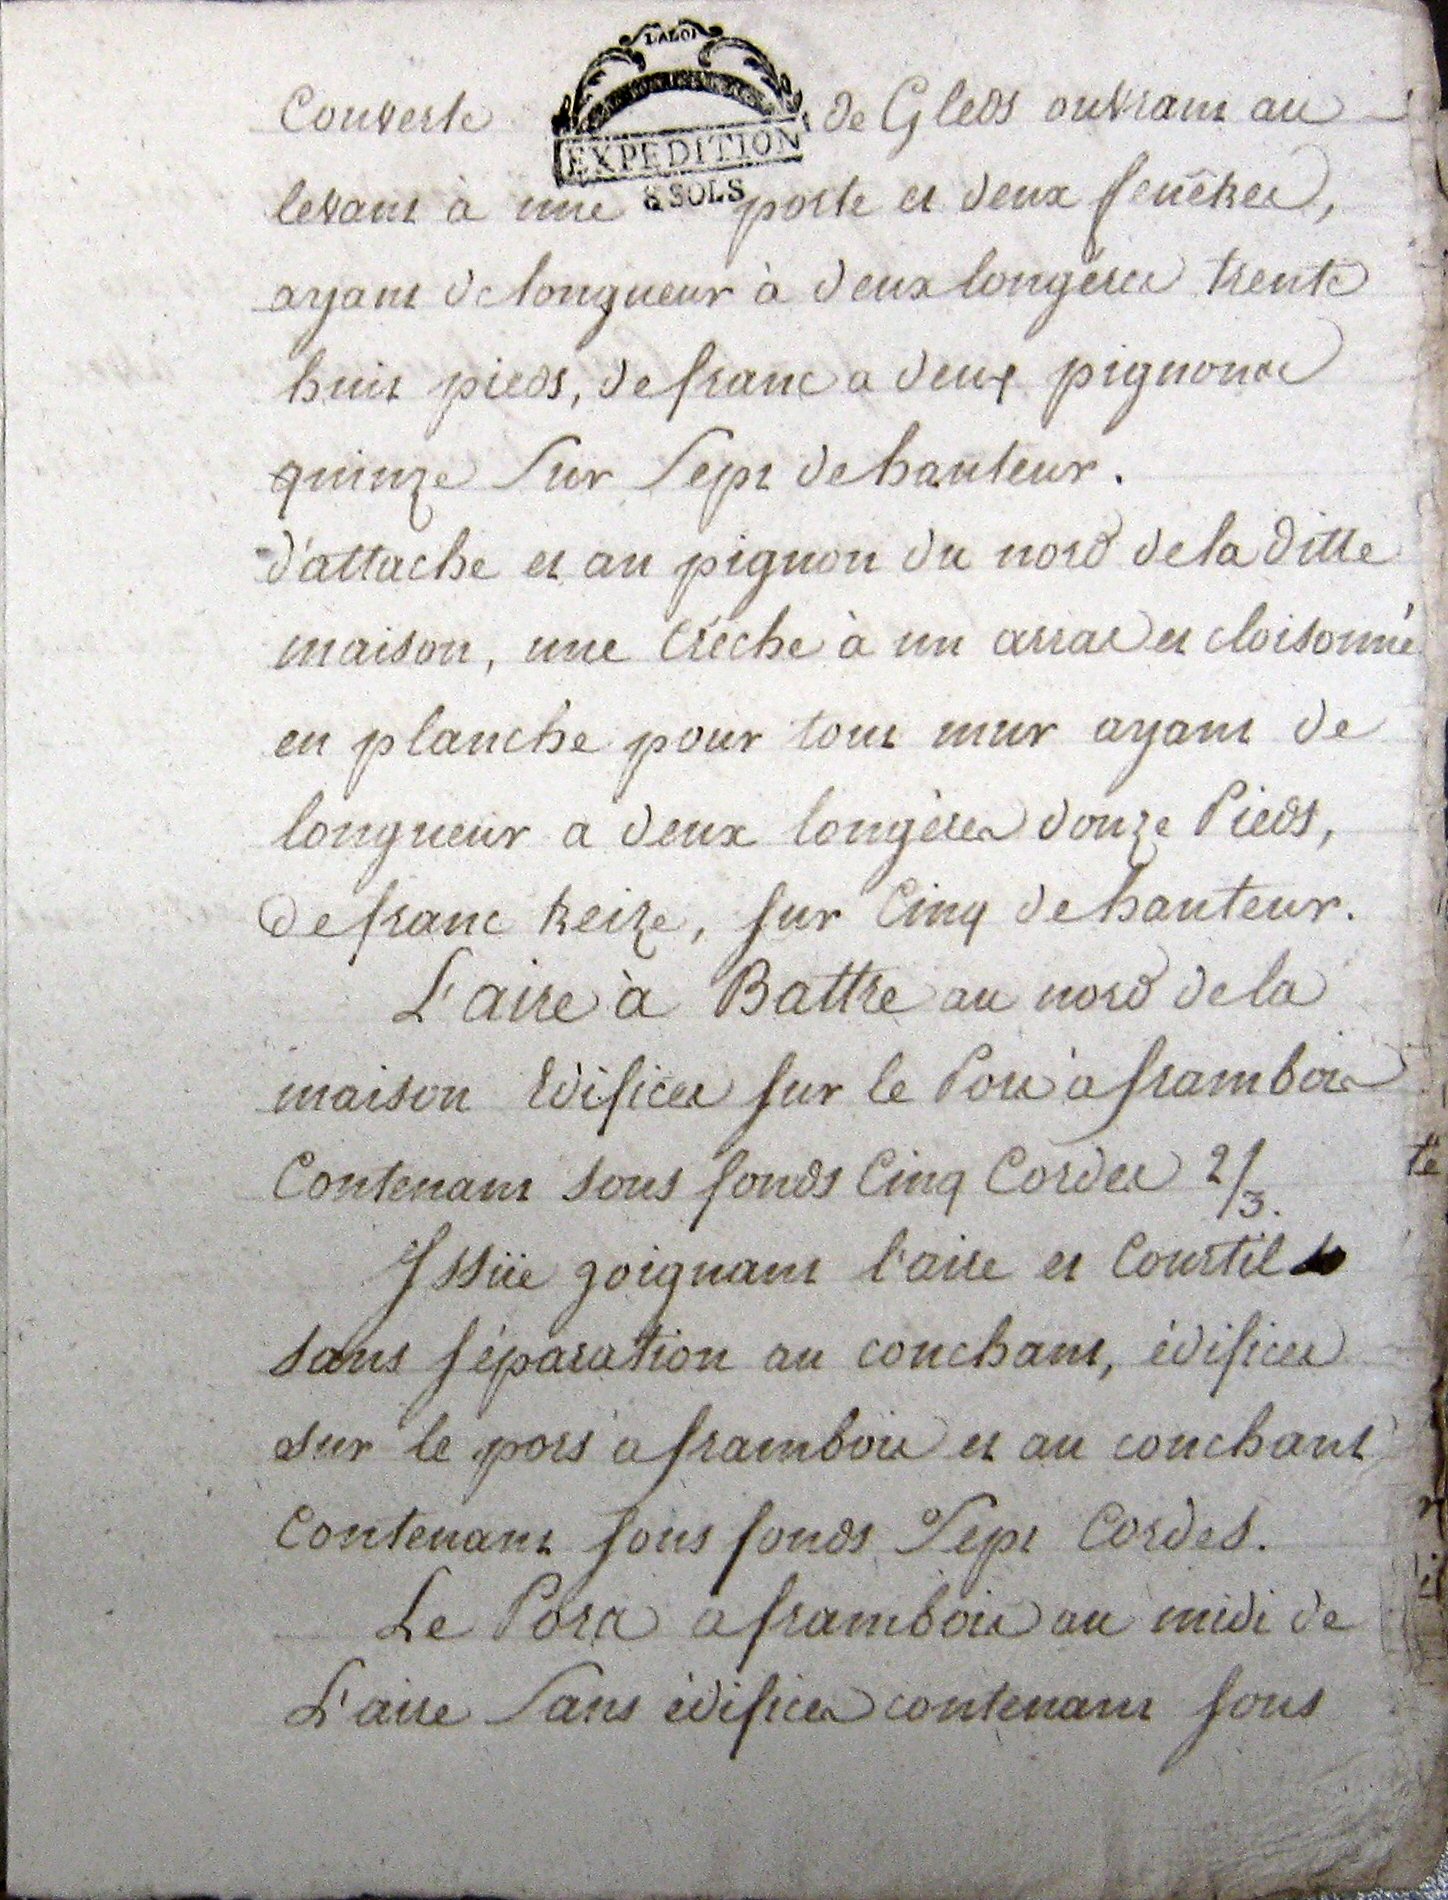 LA LOI
EXPEDITION
8 SOLS
Couverte de Gleds ouvrant au
levant à une porte et deux fenêtres,
ayant de longueur à deux longéres trente
huit pieds, de franc a deux pignons
quinze sur sept de hauteur.
d'attache et au pignon du nord de la ditte
maison, une créche à un arras et cloisonné
en planche pour tout mur ayant de
longueur a deux longères douze Pieds,
de franc treize, sur Cinq de hauteur.
L'aire à Battre au nord de la
maison Edifices sur le Pors à frambois
Contenant sous fonds Cinq Cordes 2/3.
Issüe joignant l'aire et Courtil
sans séparation au couchant, édifices
sur le pors a frambois et au couchant
Contenant sous fonds Sept Cordes.
Le Pors a frambois au midi de
L'aire Sans édifices contenant sous